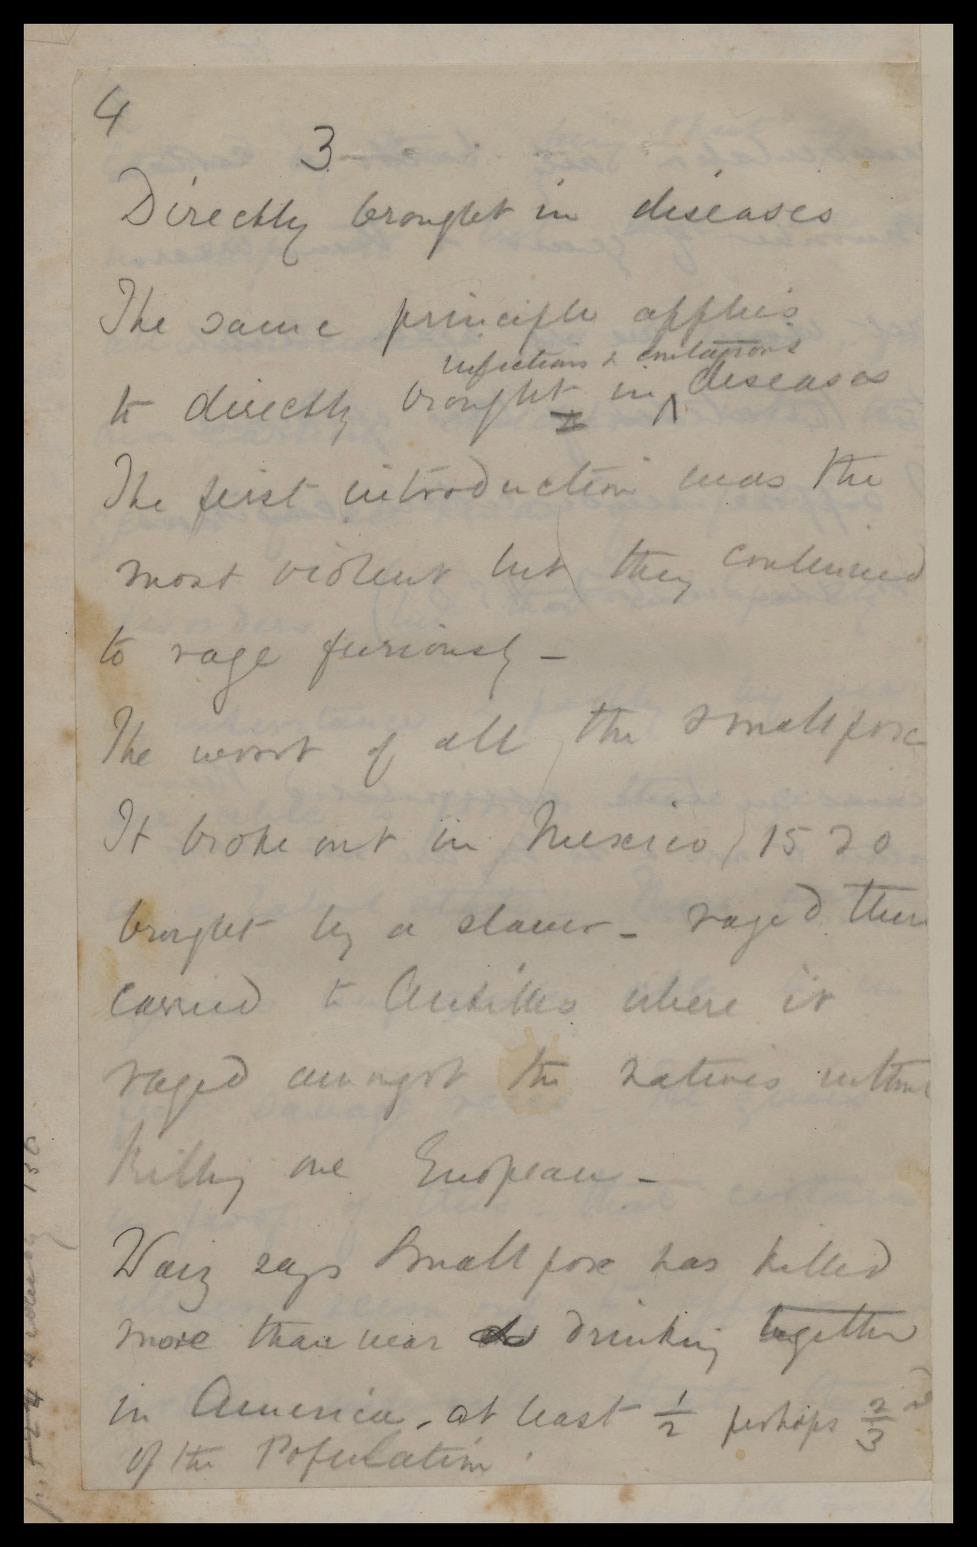 4
3
Directly brought in diseases
The same principle applies
infections & contagions
to directly brought in ^ diseases
The first introduction was the
most violent but they continued
to rage furiously -
The worst of all the small pox
It broke out in Mexico, 1520
brought by a slave - raged then
carried to Antilles where it
raged amongst the natives without
killing one European -
Waiz says Small pox has killed
more than war & drinking together
in America - at least 1/2 perhaps 2/3
of the Population.